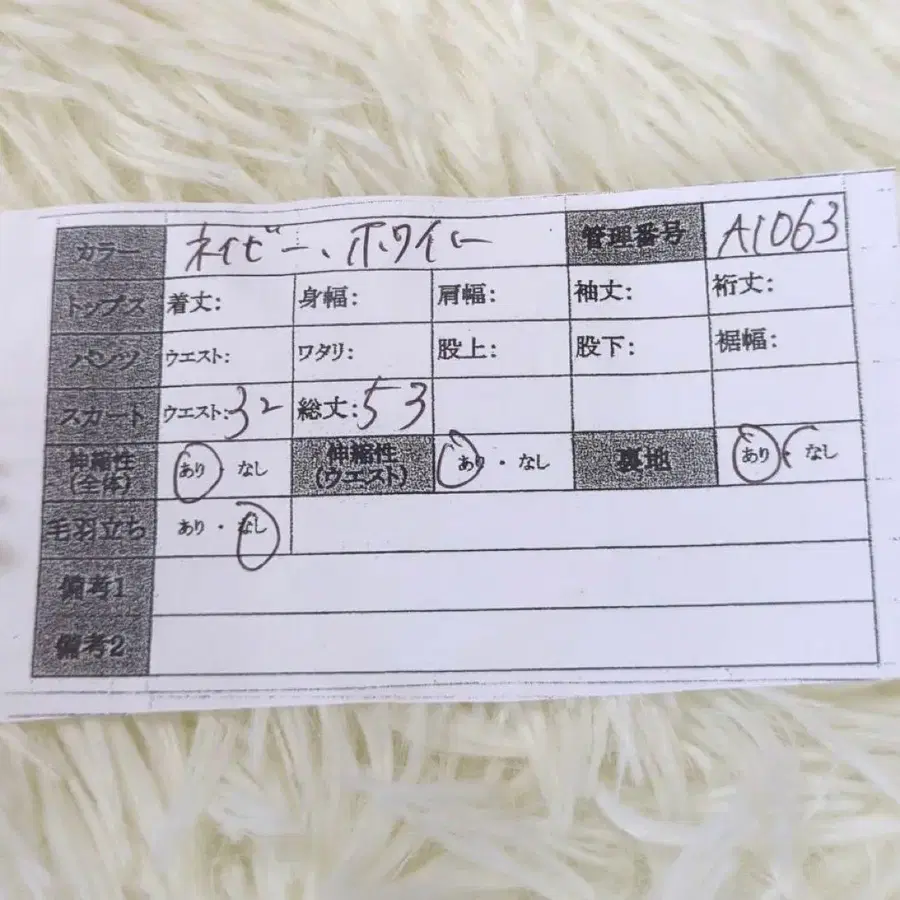 カラー ネイビー、ホワイト 管理番号 A1063
トップス 着丈: 身幅: 肩幅: 袖丈: 裄丈:
パンツ ウエスト: ワタリ: 股上: 股下: 裾幅:
スカート ウエスト:32 総丈:53
伸縮性(全体) あり・なし 伸縮性(ウエスト) あり・なし 裏地 あり・なし
毛羽立ち あり・なし
備考1
備考2